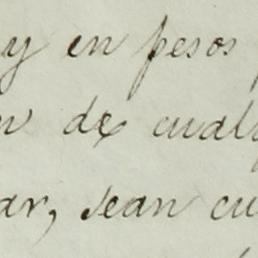 y en pesos
n de cual
ar, sean cu